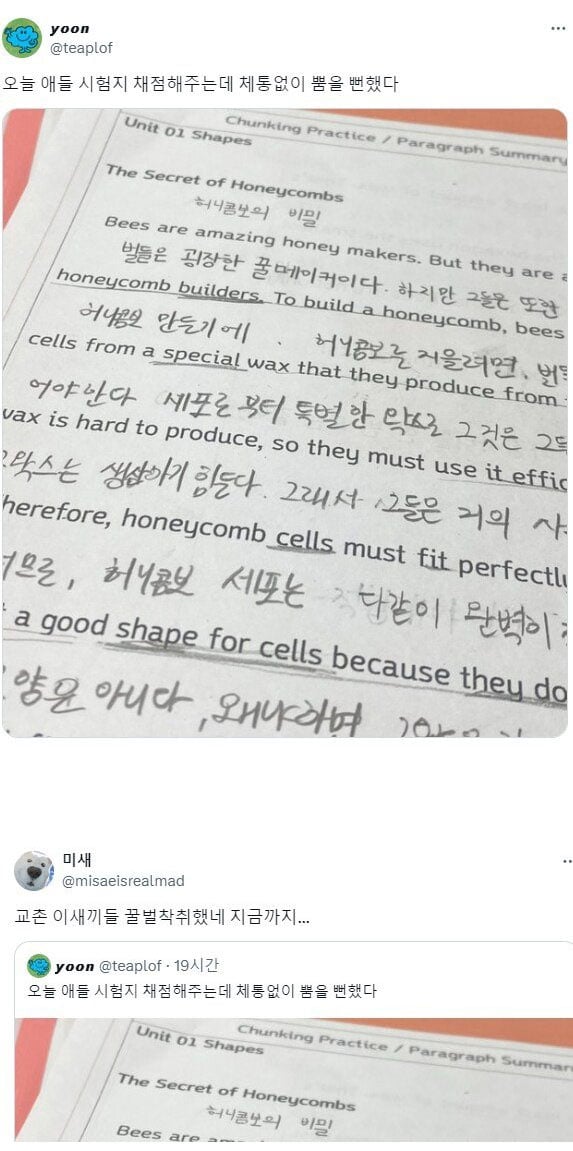 yoon
@teaplof
오늘 애들 시험지 채점해주는데 체통없이 뿜을 뻔했다
Chunking Practice / Paragraph Summary
Unit 01 Shapes
The Secret of Honeycombs
허니콤보의 비밀
Bees are amazing honey makers. But they are
벌들은 굉장한 꿀메이커이다. 하지만 그들은 또한
honeycomb builders. To build a honeycomb, bees
허니콤보 만들기에 . 허니콤보를 지을려면, 벌
cells from a special wax that they produce from
어야 한다 세포로부터 특별한 왁스로 그것은 그
wax is hard to produce, so they must use it effic
왁스는 생산하기 힘들다. 그래서 그들은 거의 사
herefore, honeycomb cells must fit perfectly
므로, 허니콤보 세포는 다같이 완벽이
a good shape for cells because they do
양은 아니다, 왜냐하면
미새
@misaeisrealmad
교촌 이새끼들 꿀벌착취했네 지금까지...
yoon @teaplof · 19시간
오늘 애들 시험지 채점해주는데 체통없이 뿜을 뻔했다
Chunking Practice / Paragraph Summar
Unit 01 Shapes
The Secret of Honeycombs
허니콤보의 비밀
Bees are